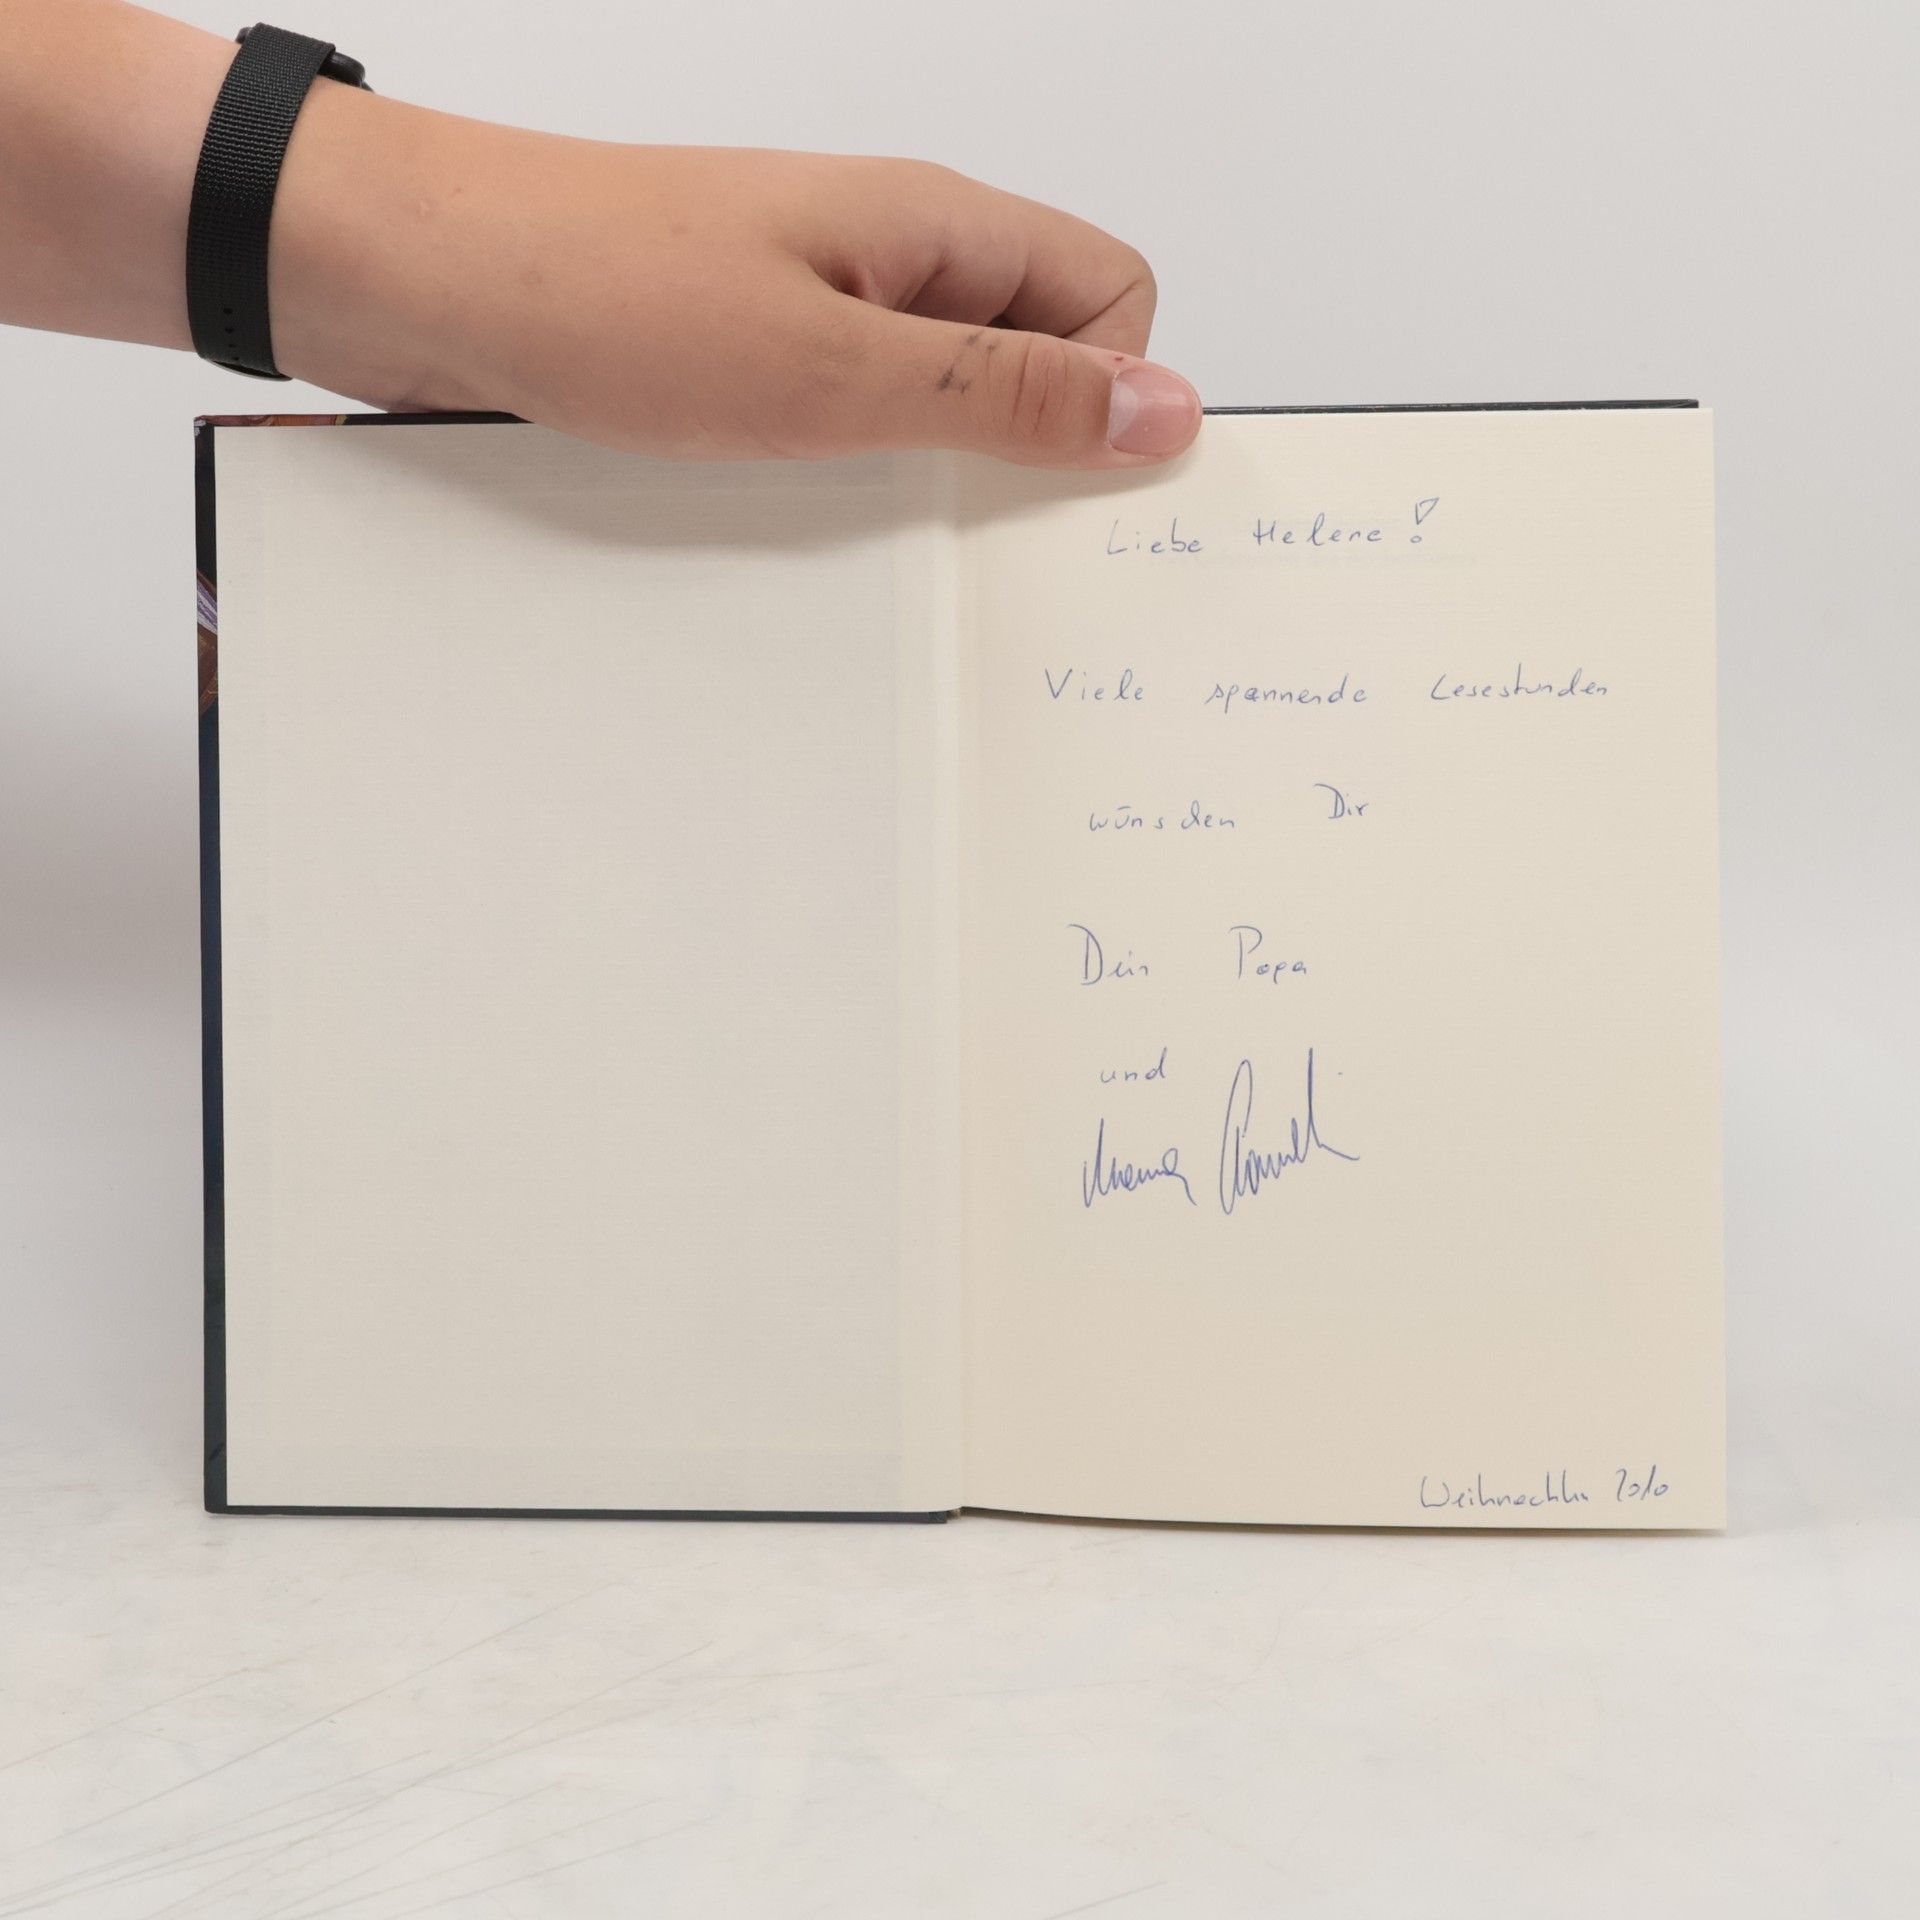 Liebe Helene!
Viele spannende Lesestunden
wünschen Dir
Dein Papa
und
Weihnachten 2010